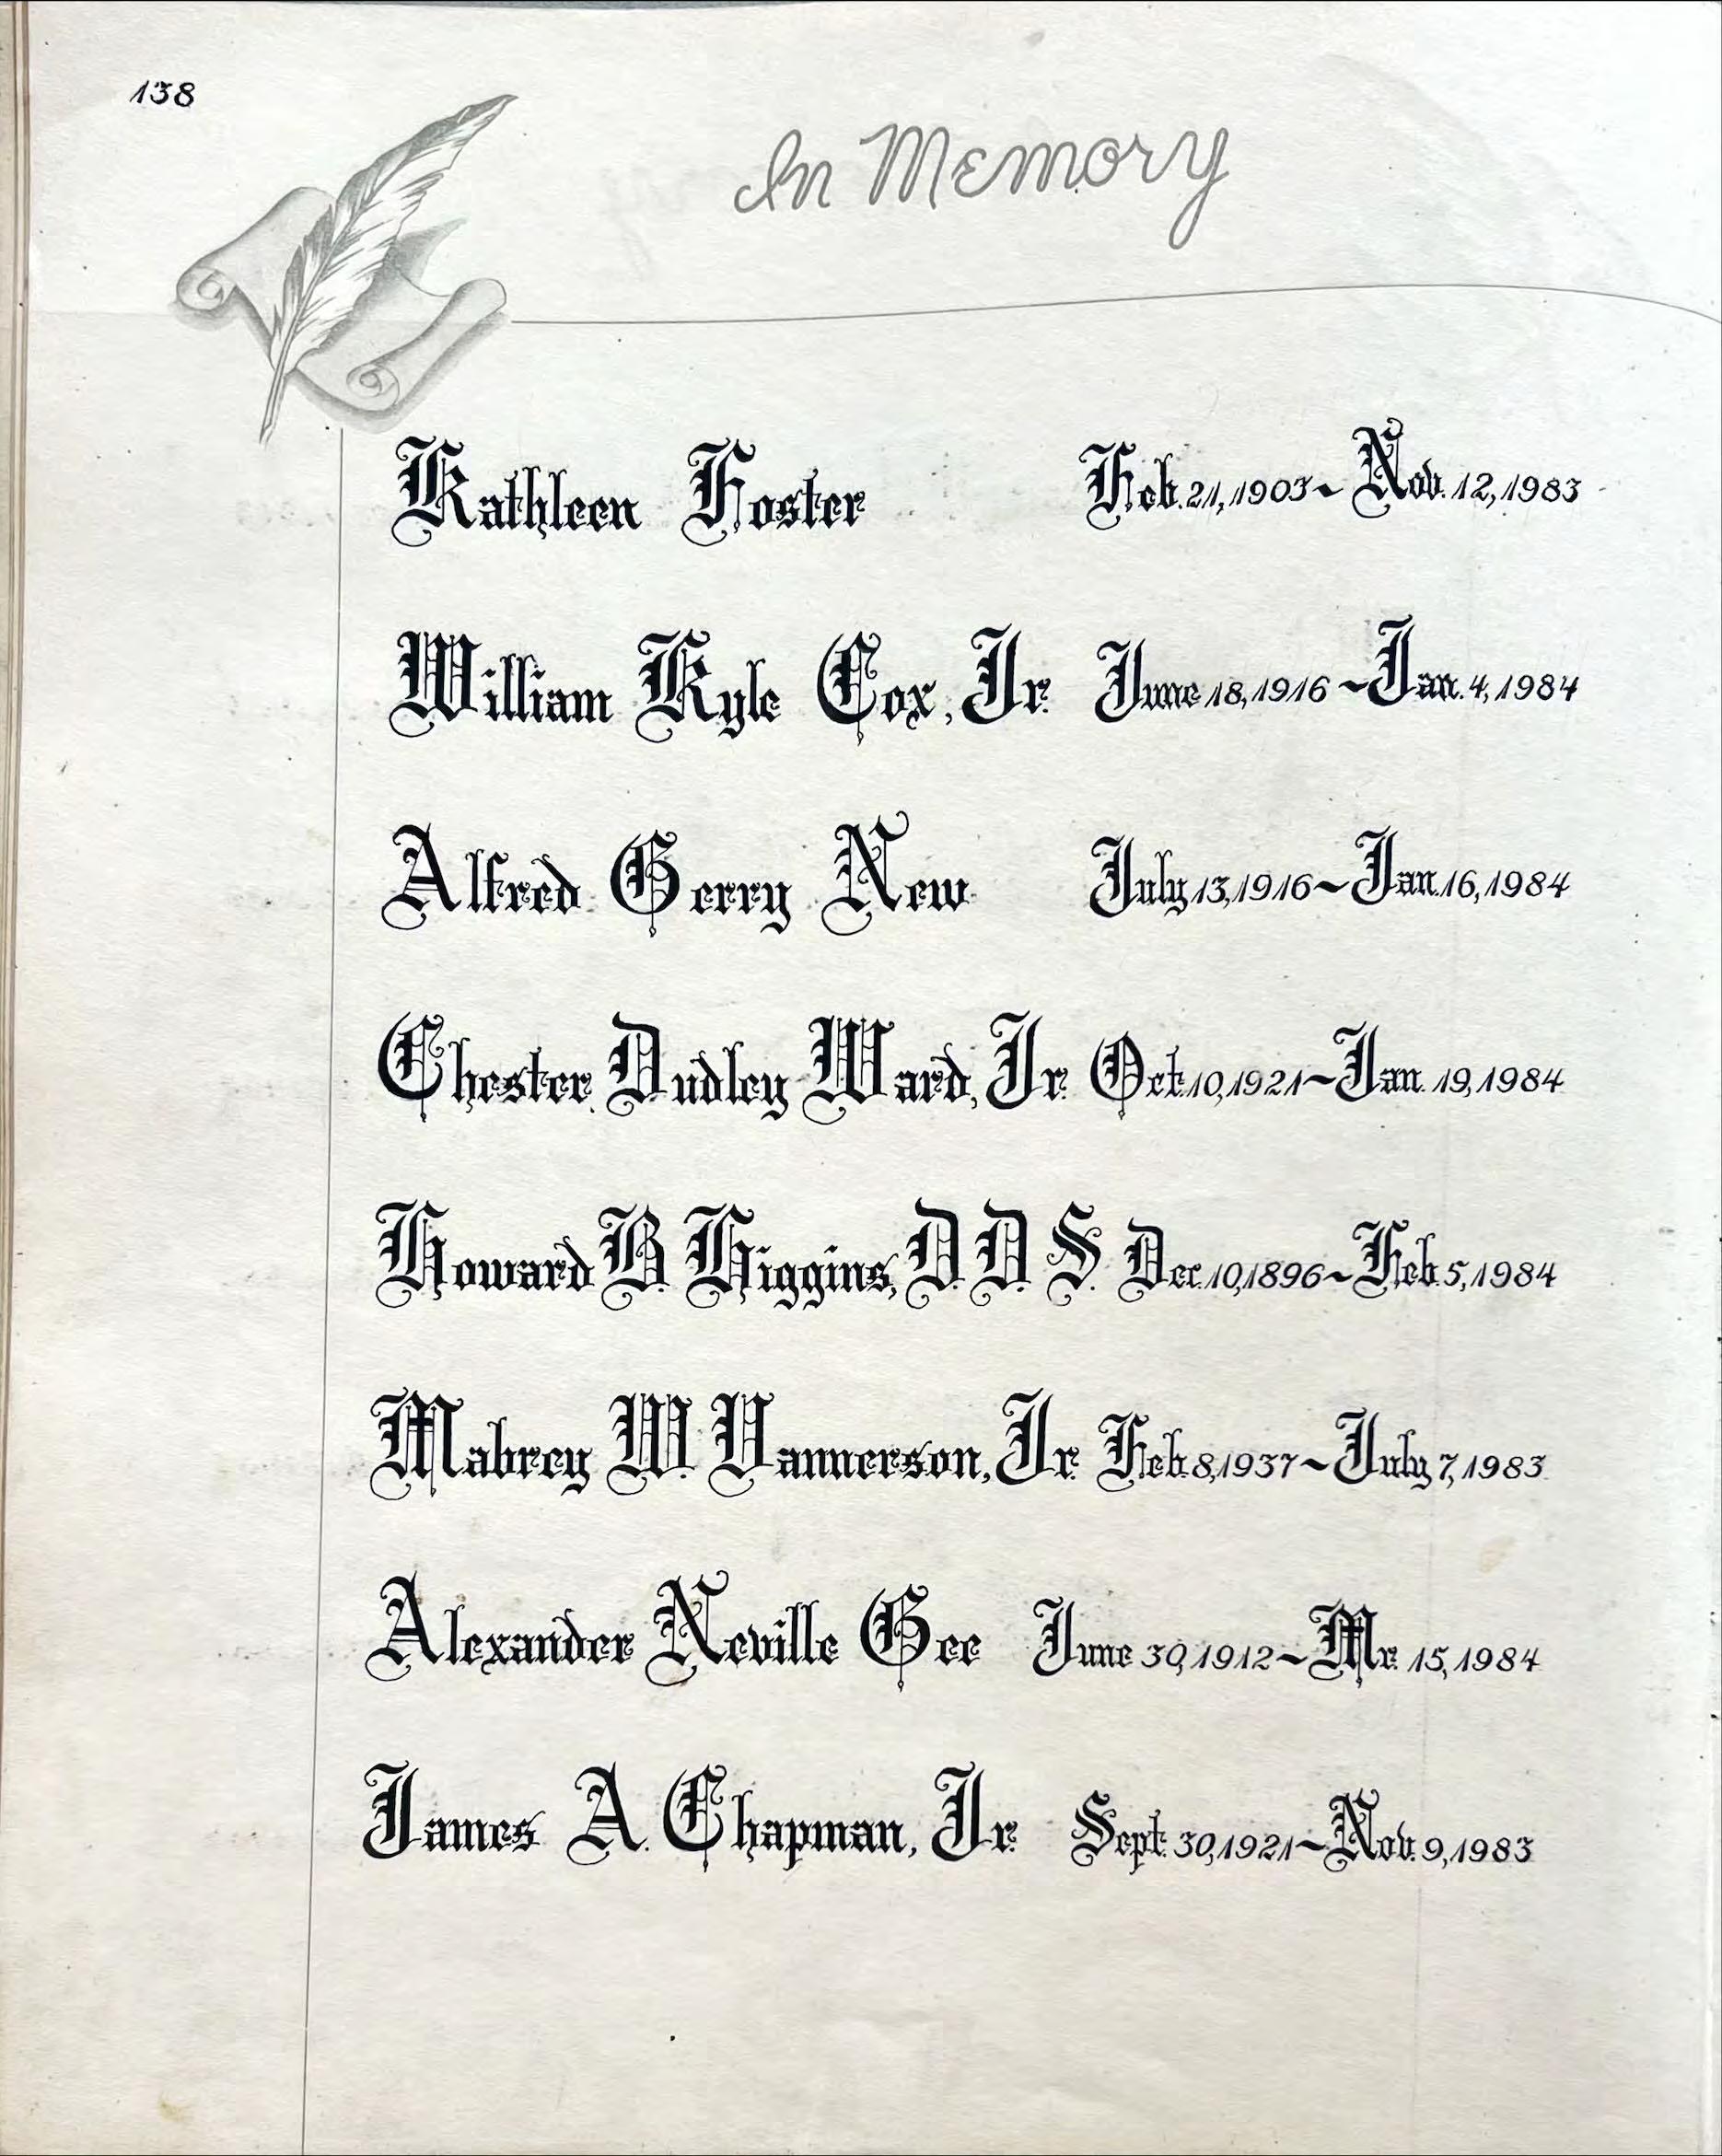 138
In Memory
Kathleen Foster Feb. 21, 1903 ~ Nov. 12, 1983
William Kyle Cox, Jr. June 18, 1916 ~ Jan. 4, 1984
Alfred Gerry New July 13, 1916 ~ Jan. 16, 1984
Chester Dudley Ward, Jr. Oct. 10, 1921 ~ Jan. 19, 1984
Howard B. Higgins, D. D. S. Dec. 10, 1896 ~ Feb. 5, 1984
Mabrey W. Vannerson, Jr. Feb. 8, 1937 ~ July 7, 1983
Alexander Neville Gee June 30, 1912 ~ Mr. 15, 1984
James A. Chapman, Jr. Sept. 30, 1921 ~ Nov. 9, 1983